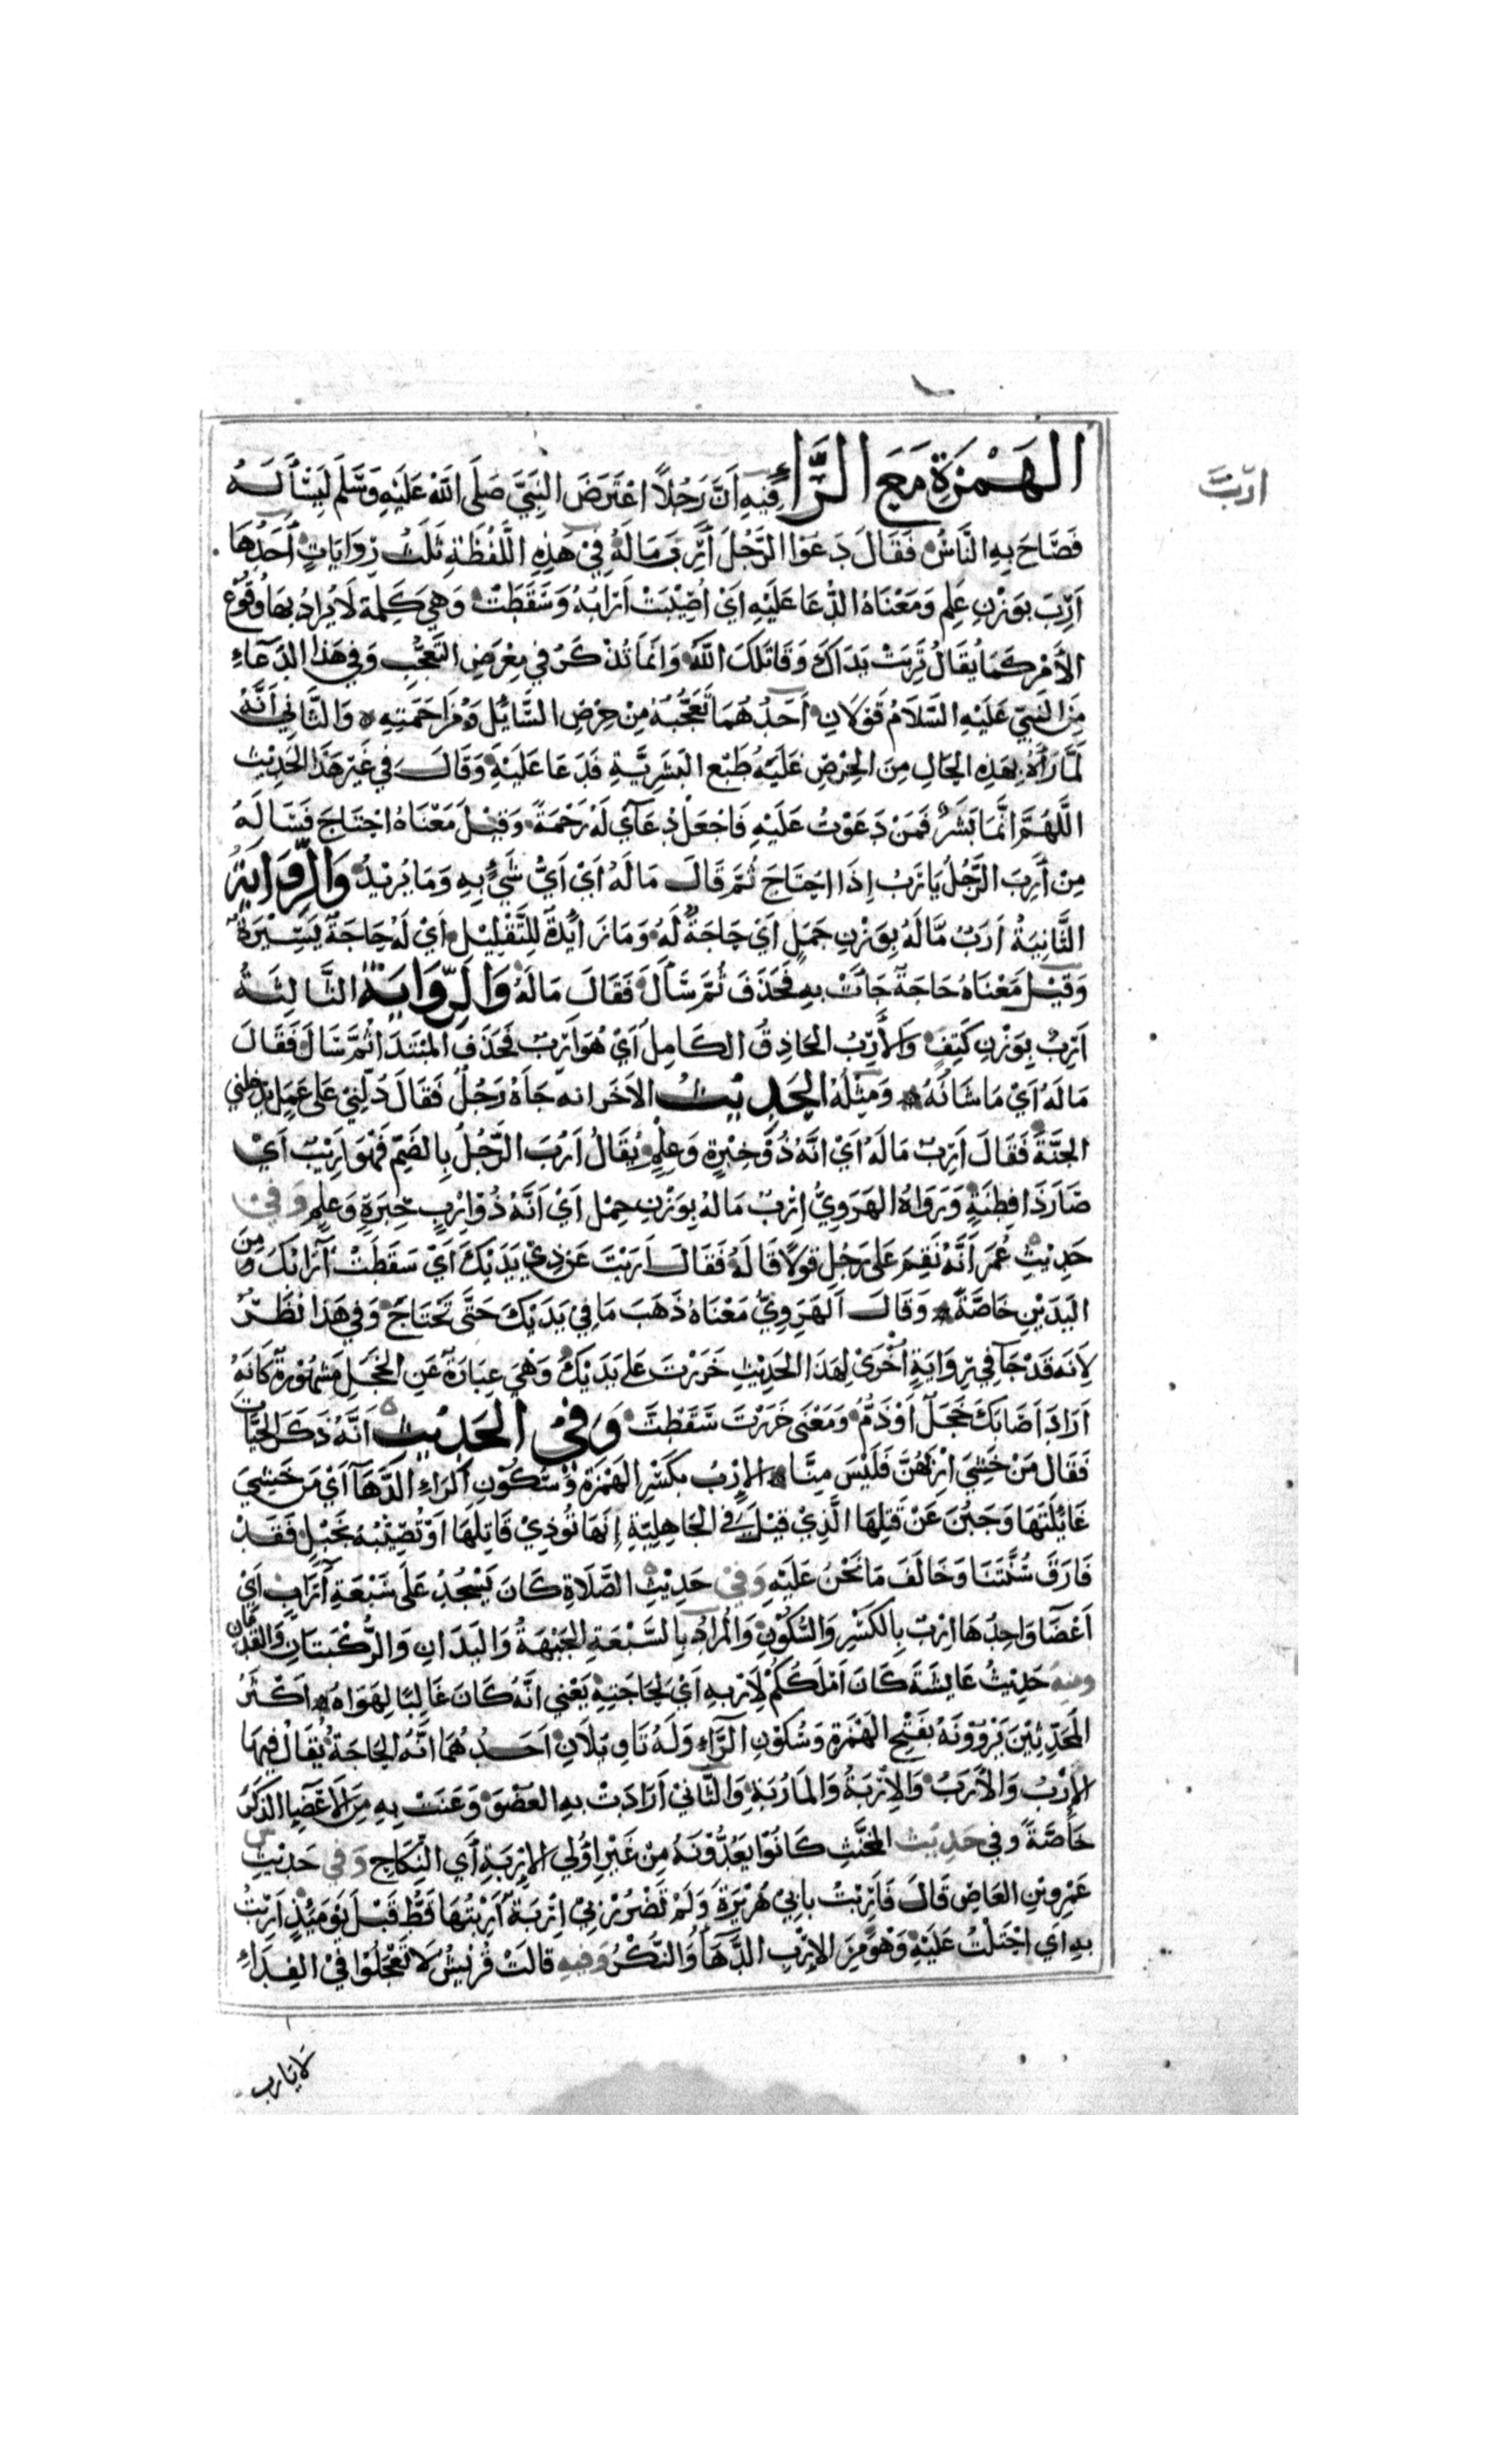 ارب
الهَمْزَةِ مَعَ الرَّاءِ فِيهِ اَنَّ رَجُلًا اعْتَرَضَ النَّبِيَّ صَلَّى اللهُ عَلَيْهِ وَسَلَّمَ لِيَسْأَلَهُ
فَصَاحَ بِهِ النَّاسُ فَقَالَ دَعَوْا الرَّجُلَ أَرِبَ مَالَهُ فِيْ هَذِهِ اللَّفْظَةِ ثَلَثُ رِوَايَاتٍ أَحَدُهَا
اَرِبَ بِوَزْنِ عَلِمَ وَمَعْنَاهُ الدُّعَا عَلَيْهِ اَيْ اُصِيْبَتْ اَرَابُهُ وَسَقَطَتْ وَهِيَ كَلِمَة لَا يُرَادُ بِهَا وُقُوعُ
الاَمْرِ كَمَا يُقَالُ تَرِبَتْ يَدَاكَ وَقَاتَلَكَ اللهُ وَانَمَا تُذْكَرُ فِي مِعْرَضِ التَّعَجُّبِ وَفِي هَذَا الدُّعَاءِ
مِنَ النَّبِيِّ عَلَيْهِ السَّلَامُ قَوْلَانِ اَحَدُهُمَا تَعَجُّبُهُ مِنْ حِرْصِ السَّايُلِ وَمُزَاحَمَتِهِ وَالثَّانِي اَنَّهُ
لَمَّا رَأَهُ بِهَذِهِ الحَالِ مِنَ الحِرْصِ غَلَبَهُ طَبْعُ البَشَرِيَّةِ فَدَعَا عَلَيْهِ وَقَالَ فِي غَيْرِ هَذَا الحَدِيْثِ
اللَّهُمَّ اِنَّمَا بَشَرٌ فَمَنْ دَعَوْتُ عَلَيْهِ فَاجْعَلْ دُعَآي لَهُ رَحْمَةً وَقِيْلَ مَعْنَاهُ احْتَاجَ فَسَالَهُ
مِنْ أَرِبَ الرَّجُلُ يَارَبُ اِذَا احْتَاجَ ثُمَّ قَالَ مَالَهُ اَيْ اَيُّ شَيْءٍ بِهِ وَمَا يُرِيْدُ وَالرِّوَايَةُ
الثَّانِيَةُ اَرَبٌ مَّا لَهُ بِوَزْنِ جَمَلٍ اَيْ حَاجَةٌ لَهُ وَمَا زَايُدَةٌ لِلتَّقْلِيْلِ اَيْ لَهُ حَاجَةٌ يَسِيْرَةٌ
وَقِيْلَ مَعْنَاهُ حَاجَةٌ جَاَتْ بِهِ فَحَذَفَ ثُمَّ سَأَلَ فَقَالَ مَالَهُ وَالرِّوَايَةُ الثَّالِثَةُ
اَرِبٌ بِوَزْنِ كَتِفٍ وَالأَرِبُ الحَاذِقُ الكَامِلُ اَيْ هُوَ اَرِبٌ فَحَذَفَ المُبْتَدَا ثُمَّ سَالَ فَقَالَ
مَالَهُ اَيْ مَا شَانُهُ وَمِثْلَهُ الحَدِيْثُ الاَخَر انه جَاَهُ رَجُلٌ فَقَالَ دُلَّنِيْ عَلَى عَمَلٍ يُدْخِلُنِي
الجَنَّةَ فَقَالَ اَرِبٌ مَالَهُ اَيْ اِنَّهُ ذُوْ خِبْرَةٍ وَعِلْمٍ يُقَالُ اَرُبَ الرَّجُلُ بِالضَّمِّ فَهُوَ اَرِيْبٌ اَيْ
صَارَ ذَا فِطْنَةٍ وَرَوَاهُ الهَرَوِيُّ اِرْبٌ مَالَهُ بِوَزْنِ حِمْلٍ اَيْ اَنَّهُ ذُوْ اِرْبٍ خِبْرَةٍ وَعِلْمٍ وَفِي
حَدِيْثِ عُمَرَ اَنَّهُ نَقِمَ عَلَى رَجُلٍ قَوْلًا قَالَهُ فَقَالَ اَرِبْتَ عَنْ ذِيْ يَدَيْكَ اَيْ سَقَطَتْ اَرَابُكَ مِنَ
اليَدَيْنِ خَاصَّةً وَقَالَ الهَرَوِيُّ مَعْنَاهُ ذَهَبَ مَا فِيْ يَدَيْكَ حَتَّى تَحْتَاجَ وَفِي هَذَا نَظَرٌ
لِاَنَّهُ قَدْ جَآ فِي رِوَايَةٍ اُخْرَى لِهَذَا الحَدِيْثِ خَرَرْتَ عَلَى يَدَيْكَ وَهِيَ عِبَارَةٌ عَنِ الخَجَلِ مَشْهُوْرَةٌ كَاَنَّهُ
اَرَادَ اَصَابَكَ خَجَلٌ اَوْ ذَمٌّ وَمَعْنَى خَرَرْتَ سَقَطْتَ وَفِي الحَدِيْثِ اَنَّهُ ذَكَرَ الحَيَّاتِ
فَقَالَ مَنْ خَشِيَ اِرْبَهُنَّ فَلَيْسَ مِنَّا الاِرْبُ بِكَسْرِ الهَمْزَةِ وَسُكُوْنِ الرَاءِ الدَّهَآ اَيْ مَن خَشِيَ
غَايُلَتَهَا وَجَبُنَ عَنْ قَتْلِهَا الَّذِيْ قِيْلَ فِي الجَاهِلِيَّةِ اِنَهَا تُوذِيْ قَاتِلَهَا اَوْ تُصِيْبُهُ بِخَبْلٍ فَقَدْ
فَارَقَ سُنَّتَنَا وَخَالَفَ مَا نَحْنُ عَلَيْهِ وَفِيْ حَدِيْثِ الصَّلَاةِ كَانَ يَسْجُدُ عَلَى سَبْعَةِ آرَابٍ اَيْ
اَعْضَآ وَاحِدُهَا اِرْبٌ بِالكَسْرِ وَالسُّكُوْنِ وَالمُرَادُ بِالسَّبْعَةِ الجَبْهَةُ وَاليَدَانِ وَالرُّكْبَتَانِ وَالقَدَمَان
ومنه حَدِيْثُ عَايشَةَ كَانَ اَمْلَكَكُمْ لِاَرْبِهِ اَيْ لِحَاجَتِهِ يَعْنِي اَنَّهُ كَانَ غَالِبًا لِهَوَاهُ اَكْثَرُ
المُحَدِّثِيْنَ يَرْوُوْنَهُ بِفَتْحِ الهَمْزَةِ وَسُكُوْنِ الرَّاءِ وَلَهُ تَاوِيْلَانِ اَحَدُهُمَا اَنَّهُ الحَاجَةُ يُقَالُ فِيهَا
الاِرْبُ وَالأَرَبُ وَالاِرْبَةُ وَالمَارُبَةُ وَالثَّانِيْ اَرَادَتْ بِهِ العُضْوَ وَعَنَتْ بِهِ مِنَ الاَعْضَآءِ الذَّكَرَ
خَاصَّةً وفي حَدِيْث المُخَنَّثِ كَانُوْا يَعُدُّوْنَهُ مِنْ غَيْرِ اوُلِي الاِرْبَةِ أَي النِّكَاحِ وَفِي حَدِيْثِ
عَمْرِو بْنِ العَاصِ قَالَ فَاَرِبْتُ بِاَبِيْ هُرَيْرَةَ وَلَمْ تَضْرُرْ بِيْ اِرْبَةٌ اَرِبْتُهَا قَطُّ قَبْلَ يَوْمَيُذٍ اَرِبْتُ
بِهِ اَي احْتَلْتُ عَلَيْهِ وَهُوَ مِنَ الاِرْبِ الدَّهَآ وَالنُّكْرُ وَفِيهِ قَالَتْ قُرَيْشٌ لَا تَعْجَلُوْا فِيْ الفِدَاءِ
لا يارب